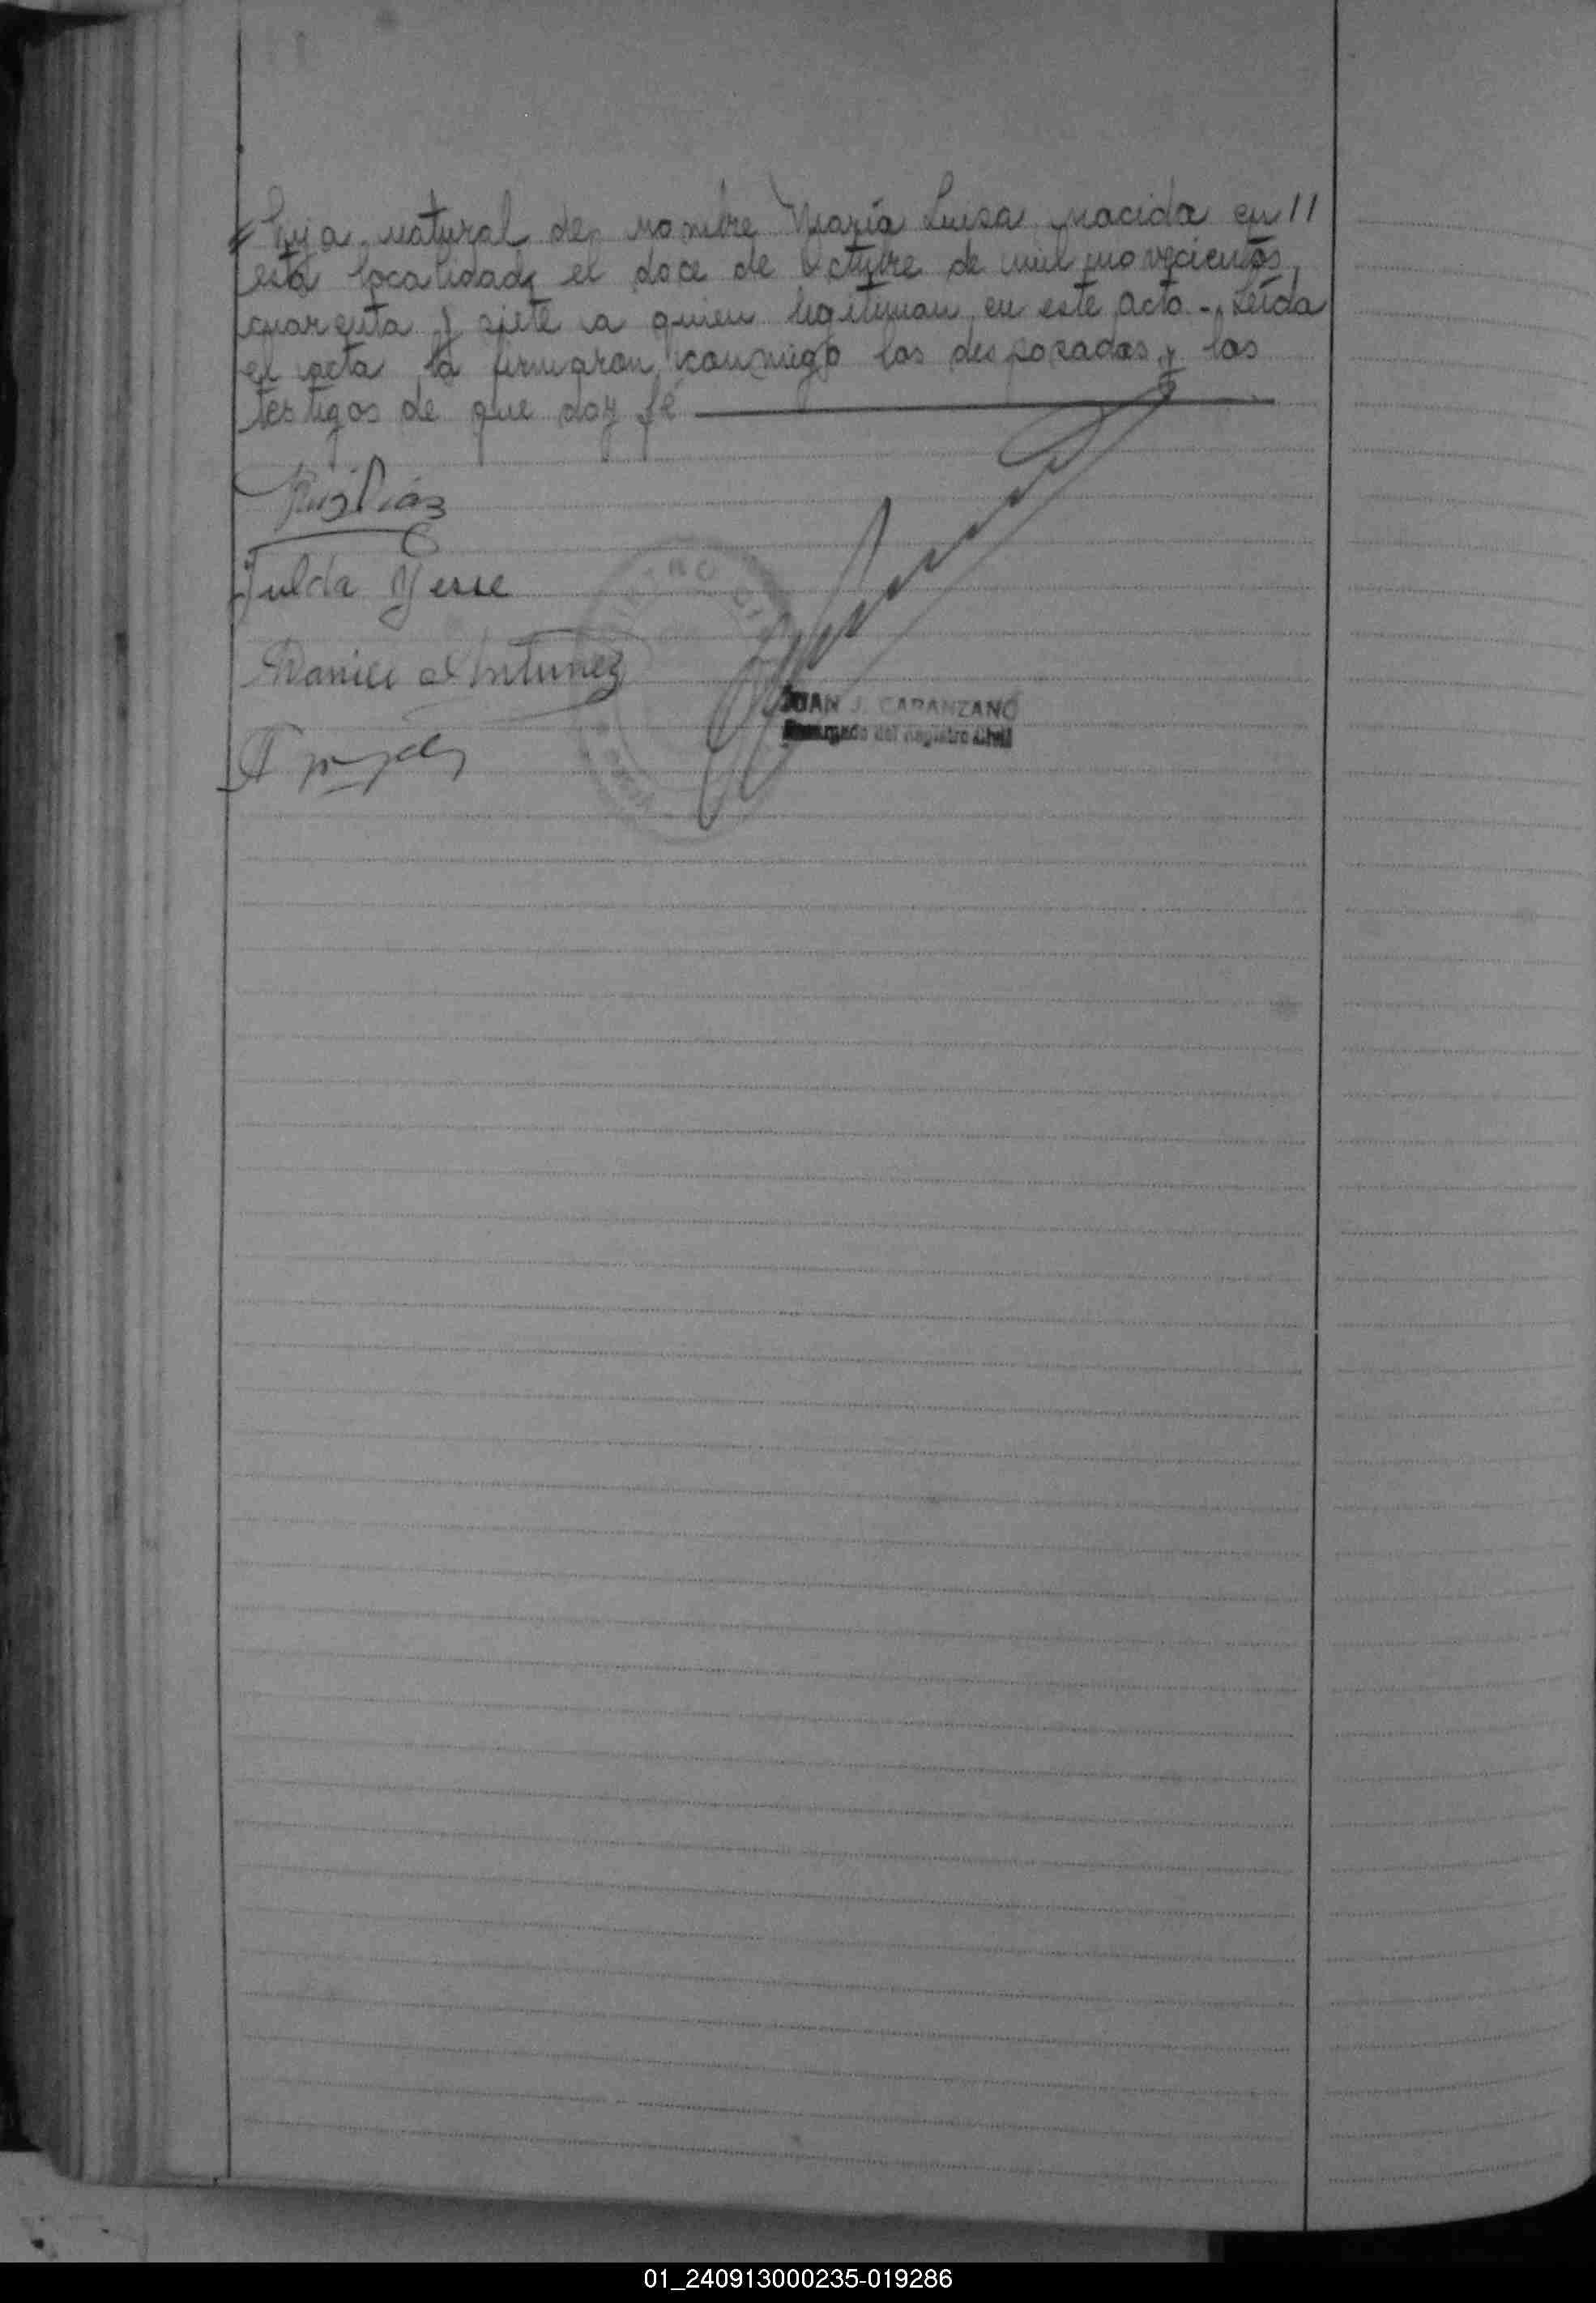 hija natural de nombre María Luisa nacida en //
esta localidad, el doce de Octubre de mil novecientos
cuarenta y siete a quien legitiman en este acto.- Leída
el acta la firmaron conmigo los desposados y los
testigos de que doy fé
Díaz
Julda Yesse
Daniel Antunez
JUAN J. CARANZANO
Encargado del Registro Civil
01_240913000235-019286